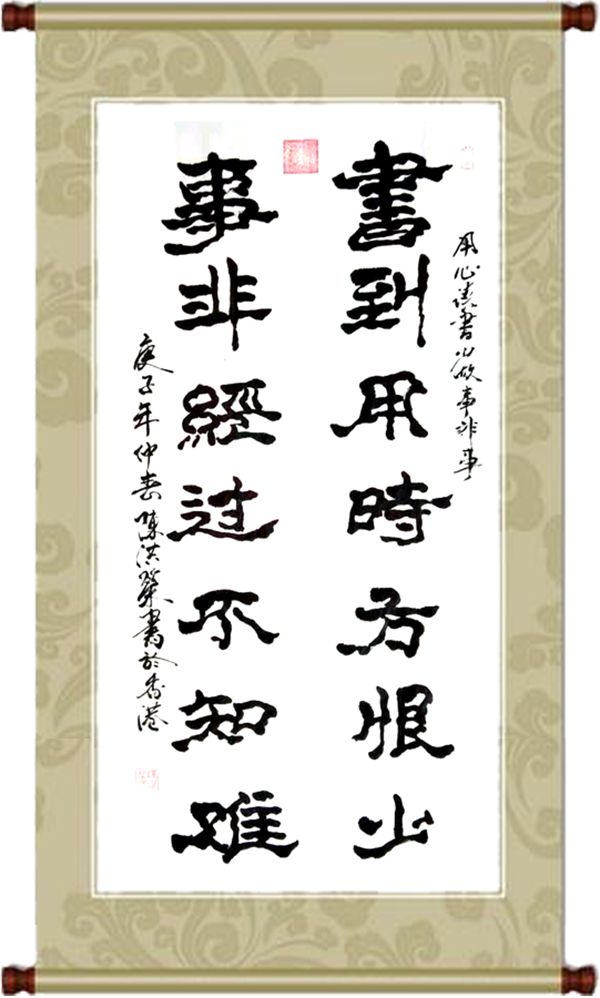 用心读书 少做事非事
書到用時方恨少
事非經过不知难
庚子年仲春陳洪榮書於香港